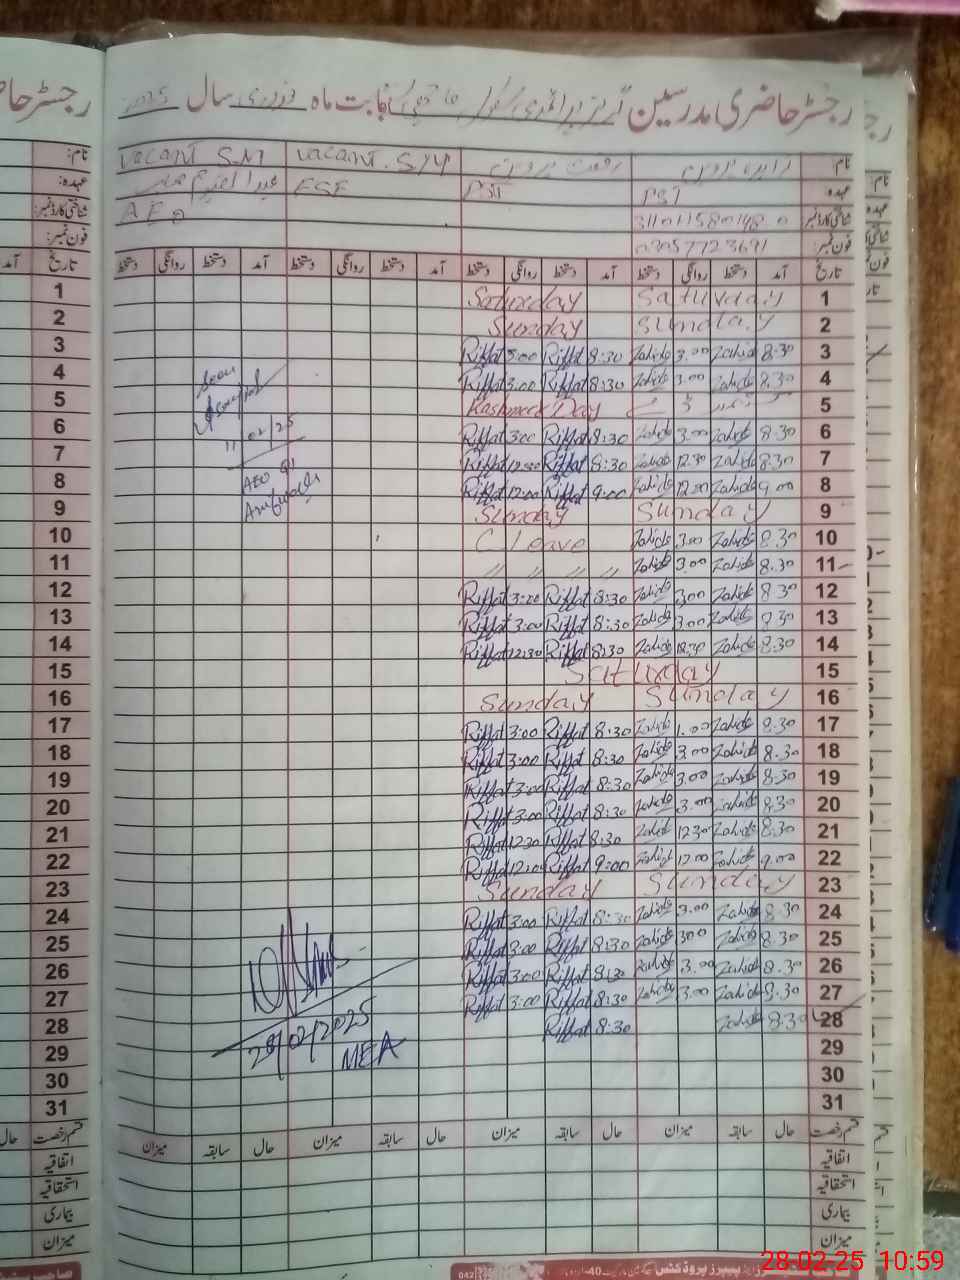 رجسٹر حاضری مدرسین گورنمنٹ بابت ماہ فروری سال 2025
نام: زاہدہ پروین رفعت پروین vacant. S/M vacant S.M
عہدہ: PST PST ESE
AEO
شناختی کارڈ نمبر:
فون نمبر: 03057723691
تاریخ آمد دستخط روانگی دستخط آمد دستخط روانگی دستخط آمد دستخط روانگی دستخط آمد دستخط روانگی دستخط
1 Saturday Saturday 1
2 Sunday Sunday 2
3 Riffat 3:00 Riffat 8:30 Zahida 3.00 Zahida 8.30 3
4 Riffat 3:00 Riffat 8:30 Zahida 3.00 Zahida 8.30 4
5 Kashmeer Day 5
6 Riffat 3:00 Riffat 8:30 Zahida 3.00 Zahida 8.30 6
7 Riffat 12:30 Riffat 8:30 Zahida 12.30 Zahida 8.30 7
8 Riffat 12:00 Riffat 9:00 Zahida 12.00 Zahida 9.00 8
9 Sunday Sunday 9
10 C Leave Zahida 3.00 Zahida 8.30 10
11 〃 〃 〃 〃 Zahida 3.00 Zahida 8.30 11
12 Riffat 3:00 Riffat 8:30 Zahida 3.00 Zahida 8.30 12
13 Riffat 3:00 Riffat 8:30 Zahida 3.00 Zahida 8.30 13
14 Riffat 12:30 Riffat 8:30 Zahida 12.30 Zahida 8.30 14
15 Saturday 15
16 Sunday Sunday 16
17 Riffat 3:00 Riffat 8:30 Zahida 1.00 Zahida 8.30 17
18 Riffat 3:00 Riffat 8:30 Zahida 3.00 Zahida 8.30 18
19 Riffat 3:00 Riffat 8:30 Zahida 3.00 Zahida 8.30 19
20 Riffat 3:00 Riffat 8:30 Zahida 3.00 Zahida 8.30 20
21 Riffat 12:30 Riffat 8:30 Zahida 12.30 Zahida 8.30 21
22 Riffat 12:00 Riffat 9:00 Zahida 12.00 Zahida 9.00 22
23 Sunday Sunday 23
24 Riffat 3:00 Riffat 8:30 Zahida 3.00 Zahida 8.30 24
25 Riffat 3:00 Riffat 8:30 Zahida 3.00 Zahida 8.30 25
26 Riffat 3:00 Riffat 8:30 Zahida 3.00 Zahida 8.30 26
27 Riffat 3:00 Riffat 8:30 Zahida 3.00 Zahida 8.30 27
28 Riffat 8:30 Zahida 8.30 28
29 29
30 30
31 31
Seen
11/02/25
AEO
28/02/2025
MEA
قسم رخصت حال سابقہ میزان حال سابقہ میزان حال سابقہ میزان حال سابقہ میزان
اتفاقیہ
استحقاقیہ
بیماری
میزان
28-02-25 10:59